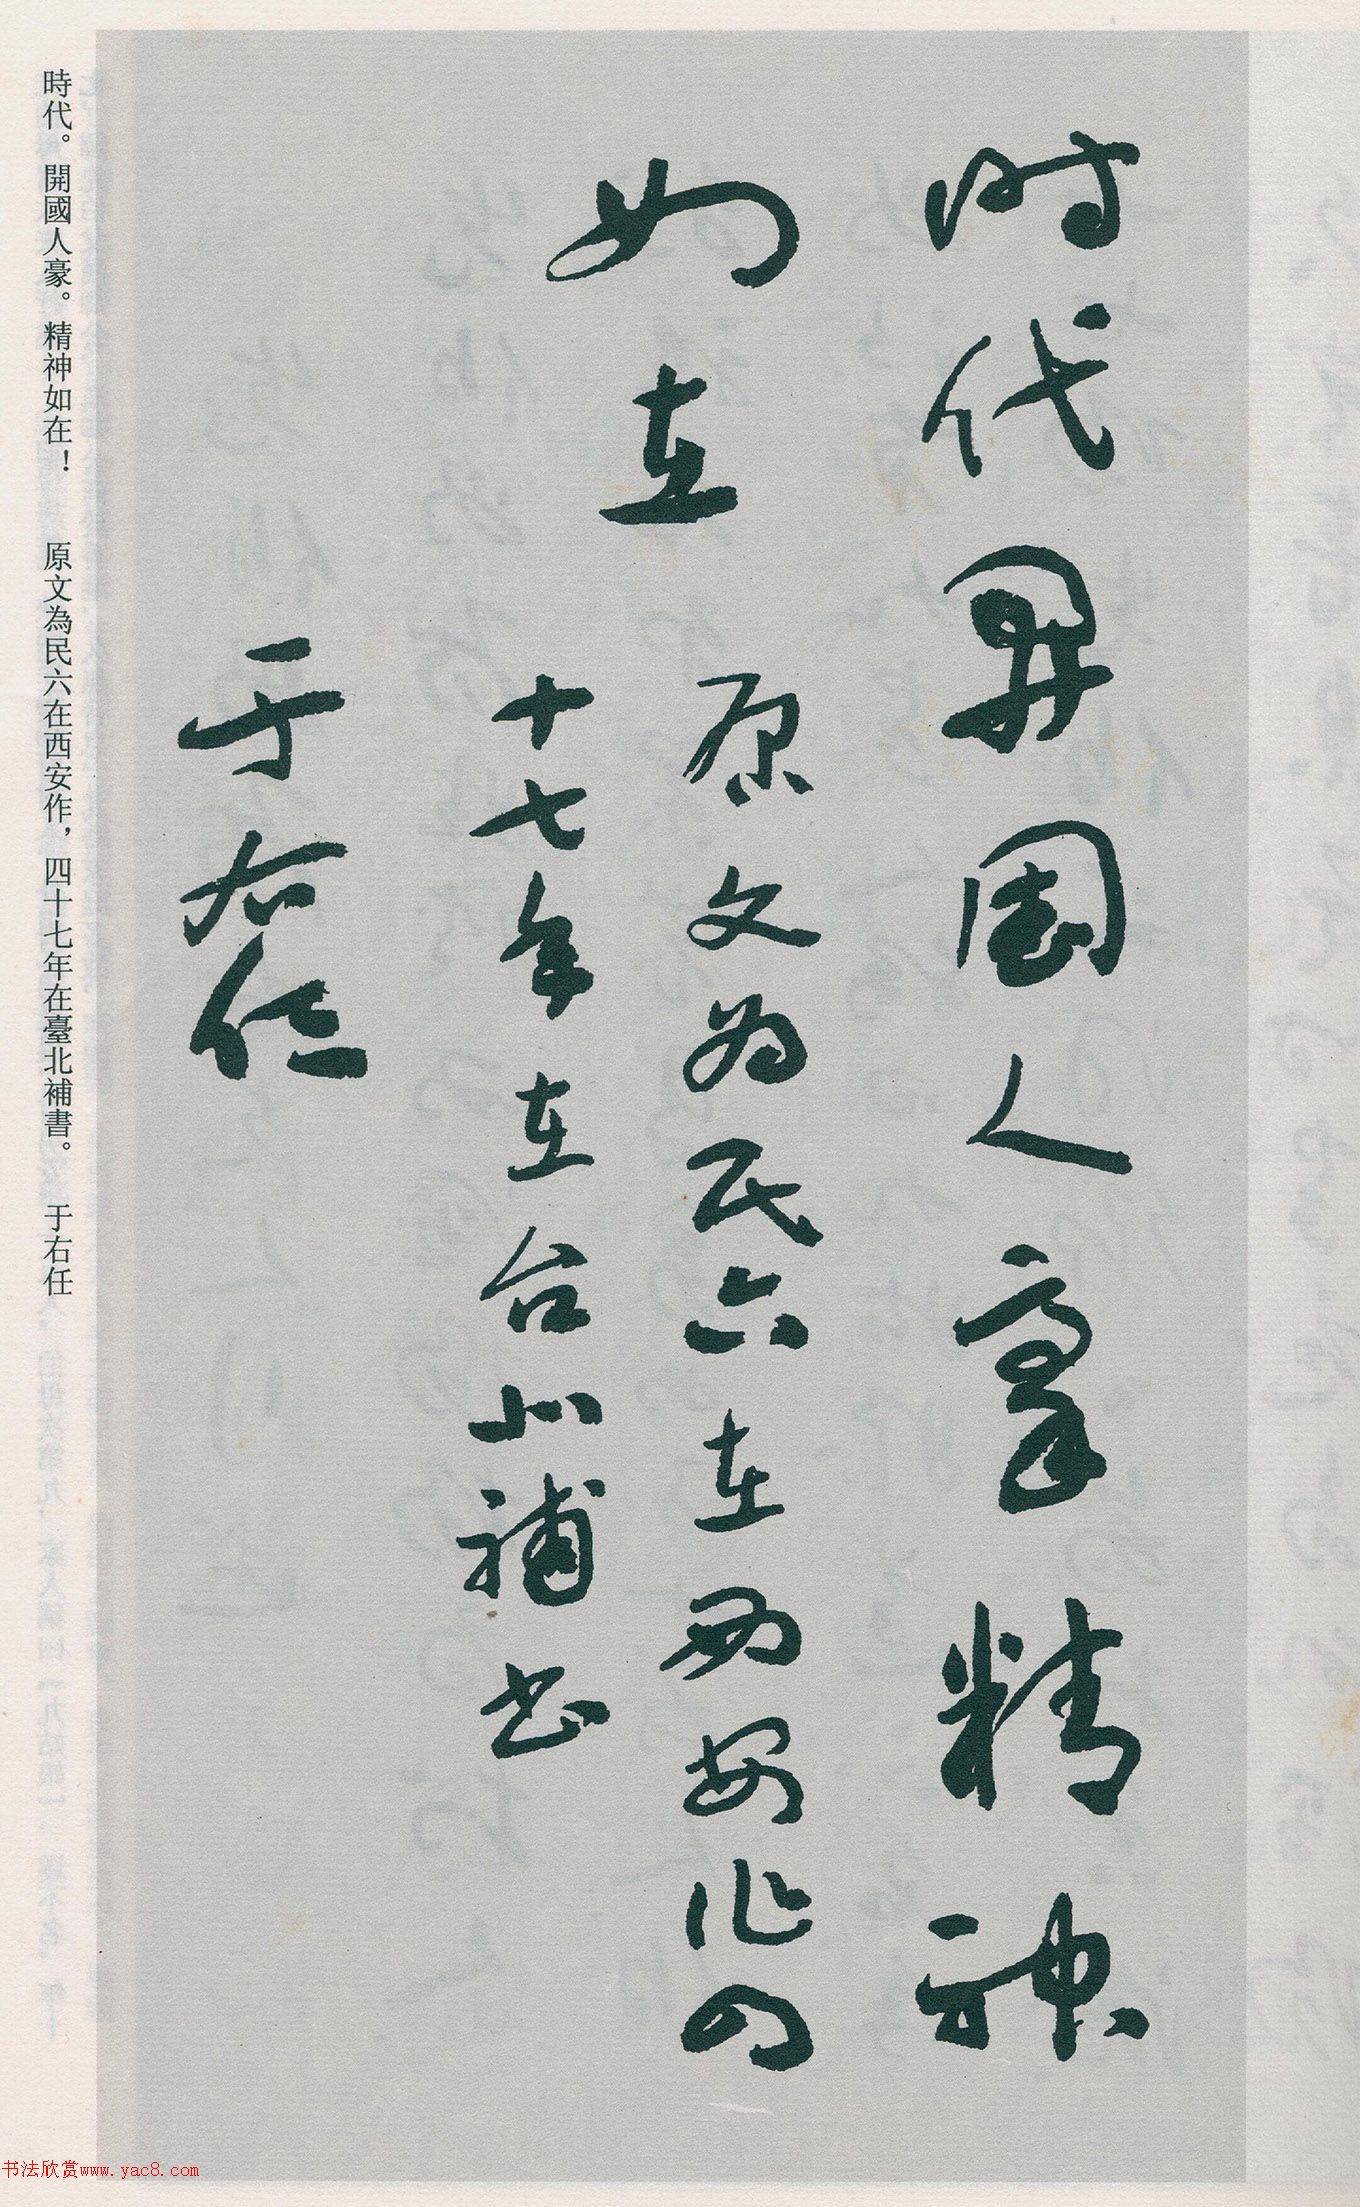 时代开国人豪精神
如在
原文为民六在西安作四
十七年在台北補书
于右任
時代。開國人豪。精神如在！　原文為民六在西安作，四十七年在臺北補書。　于右任
书法欣赏www.yac8.com